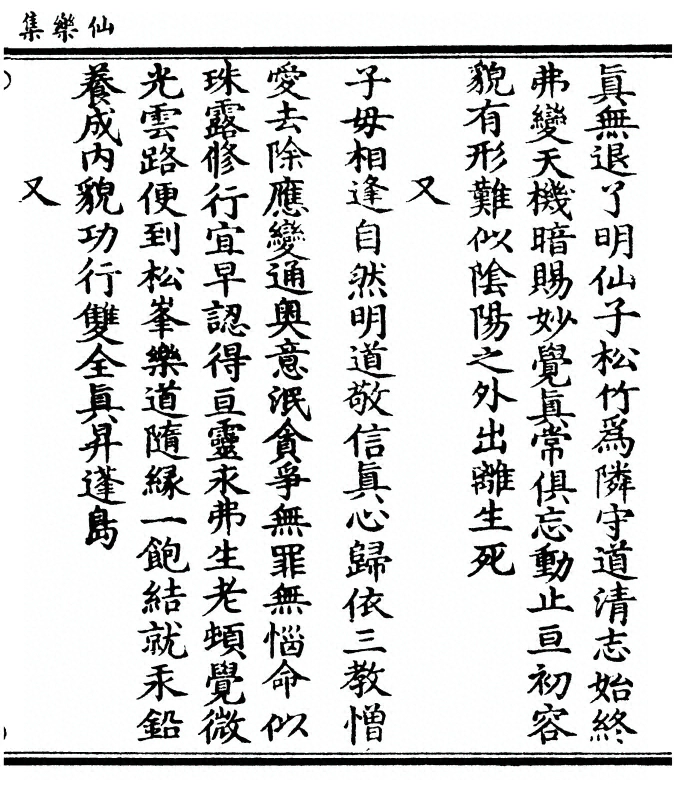 仙樂集
眞無退了明仙子松竹爲隣守道清志始終
弗變天機暗賜妙覺眞常俱忘動止亘初容
貌有形難似陰陽之外出離生死
又
子母相逢自然明道敬信眞心歸依三教憎
愛去除應變通奧意泯貪爭無罪無惱命似
珠露修行宜早認得亘靈永弗生老頓覺微
光雲路便到松峯樂道隨緣一飽結就汞鉛
養成內貌功行雙全眞昇蓬島
又